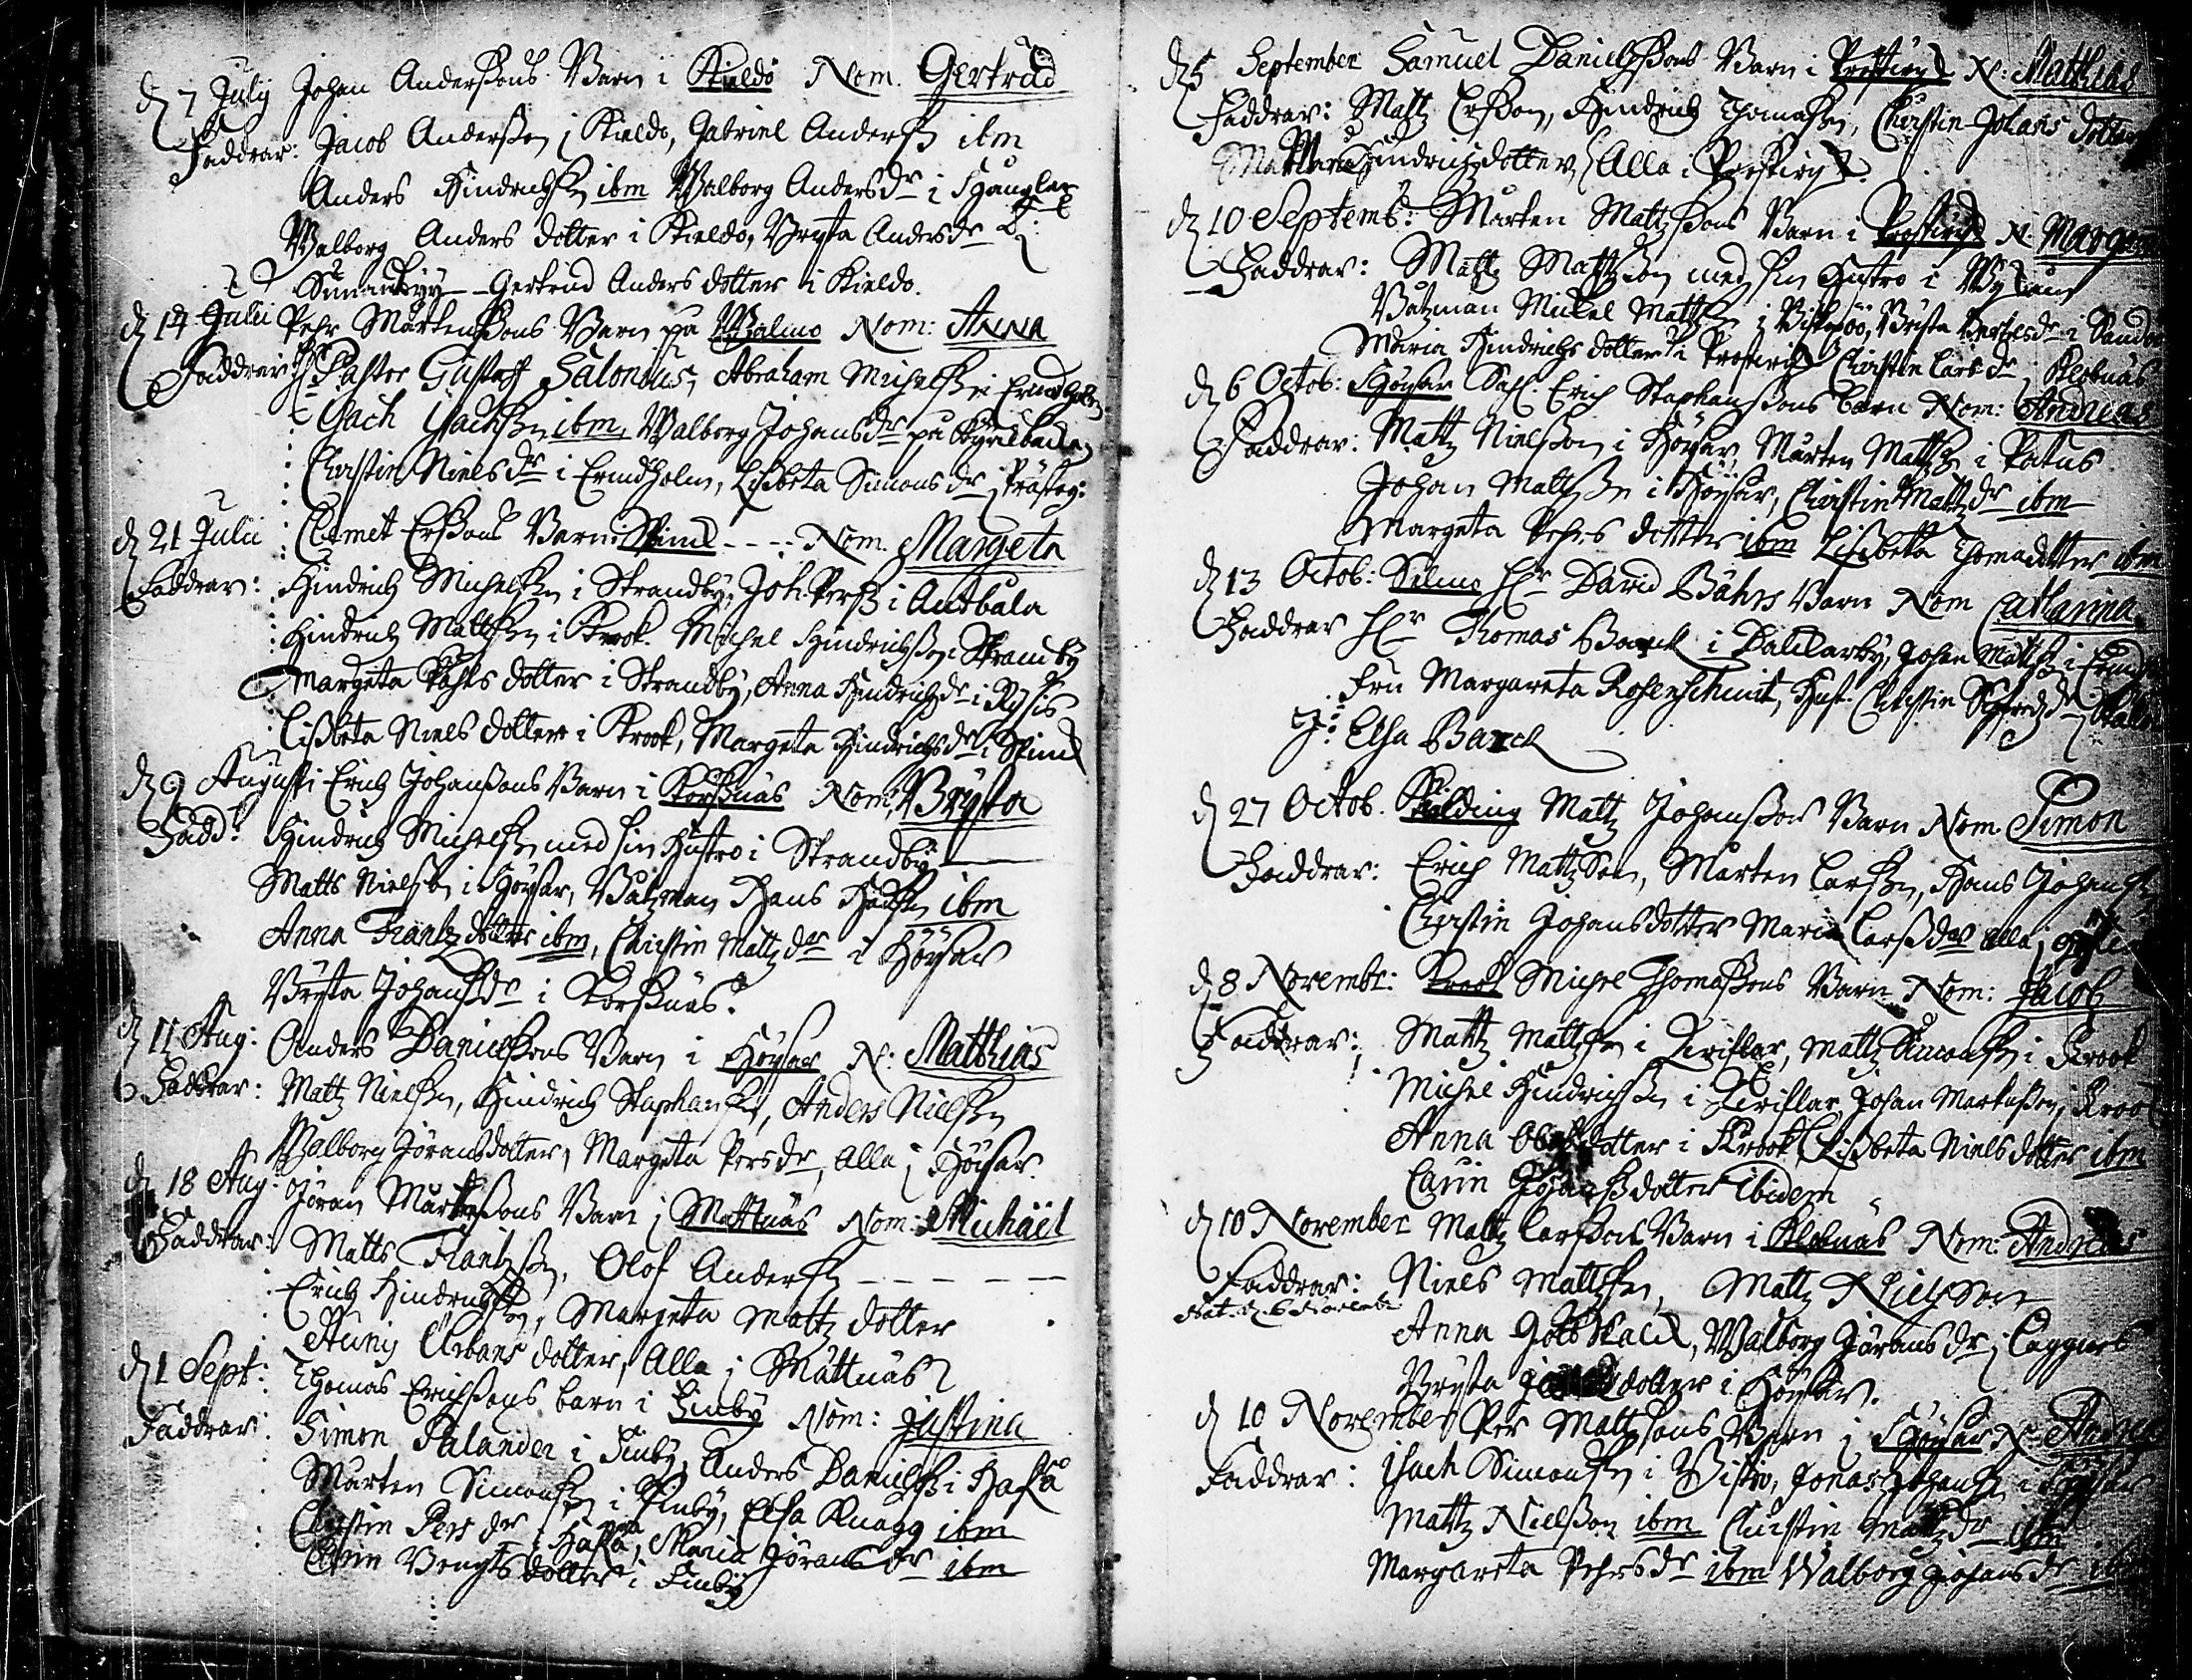 d 7 Julij Johan Anderßons Barn i Kieldö Nom. Gertrud
Faddrar: Jacob Anderßon i Kieldö, Gabriel Anderß ibm
Anders Hindrichßn ibm Walborg Anders dr i
Walborg Anders dotter i Kieldö, Brijta Anders dr
Gertrud Anders dotter i Kieldö.
d 14 Julii Pehr Mårtenßons Barn på Walmo Nom: Anna
Faddrar Hr Pastor Gustaff Salonius, Abraham Michelßn i
Isach Isachßn ibm, Walborg Johans dr på
Christin Niels dr i Ermdholm, Lisbeta Simons dr i
d 21 Julii Clemet Erßons Barn i Spink - - - : Nom. Margeta
Faddrar: Hindrich Michelßn i Strandby, Joh. Perß i Antbåla
Hindrich Mattßn i Krook. Michel Hindrichßon i Strandby
Margeta Påhls dotter i Strandby, Anna Hindrichs dr i Rysis
Lisbeta Niels dotter i Krook, Margeta Hindrichs dr i Spink
d 9 Augusti Erich Johanßons Barn i Korßnäs Nom: Brijta
Fadd: Hindrich Michelßn med sin Hustro i Strandby
Matts Nielßon i Höysar, Båtzman Hans ibm
Anna Frantz dotter ibm, Christin Mattz dr i Höysar
Brijta Johanß dr i Korßnäs.
d 11 Aug: Anders Danielßons Barn i Höysar N: Matthias
Faddrar: Mattz Nielßn, Hindrich Staphanßn, Anders Nielßn
Walborg Jöransdotter, Margeta Pers dr, alla i Höysar.
d 18 Aug: Jöran Mårtenßons Barn i Mattnäs Nom: Michäel
Faddrar: Matts Frantzßn, Olof Anderßn - - - - -
Erich Hindrichßon, Margeta Mattz dotter
Urbans dotter, Alla i Mattnäs
d 1 Sept: Thomas Erichßons barn i Finby Nom: Justina
Faddrar: Simon Salander i Finby, Anders Danielß i Hakå
Mårten Simonßn i Finby, Elsa Knagg ibm
Christin Pers dr i Hakå, Maria Jörans dr ibm
Bengts dotter i Finby
d 5 September Samuel Danielßons Barn i N: Matthias
Faddrar: Mattz Erßon, Hindrich Thomaßn, Christin Johans dotter
Hindrichzdotter Alla i
d 10 Septemb: Mårten Mattzßons Barn i N: Marge
Faddrar: Mattz Mattzßon med sin Hustro i
Båtzman Mickel Mattßn i Biskopöö, Brijta dr i
Maria Hindrichs dotter i Christin Lars dr i Kleknäs
d 6 Octob: Höysar Sahl. Erich Staphanßons barn Nom: Andreas
Faddrar: Mattz Nielßon i Höysar, Mårten Mattßn i
Johan Mattßn i Höysar, Christin Mattz dr ibm
Margeta Pehrs dotter ibm Lisbeta Thomadotter ibm
d 13 Octob: Selmo Hr David Bährs Barn Nom Catharina
Faddrar Hr Thomas Barck i Dahlkarby, Johan Mattßn i
Fru Margareta Rosenschmit, Hust. Christin Sigfreds dr
J: Elsa Barck
d 27 Octob. Skålding Mattz Johanßons Barn Nom. Simon
Faddrar: Erich Mattzson, Mårten Larßn, Hans Johanß
Christin Johansdotter Maria Larßdotter alla i
d 8 Novembr: Krook Michel Thomaßons Barn Nom: Jacob
Faddrar: Mattz Mattßn i Kiriklax, Mattz Simonßn i Krook
Michel Hindrichßn i Kiriklax Johan Markußon i Krook
Anna dotter i Krook Lisbeta Niels dotter ibm
Carin dotter Ibidem
d 10 November Mattz Larßons Barn i Kleknäs Nom: Andreas
Faddrar: Niels Mattßn, Mattz Nielßon
Nat. d 6 Novembr
Anna Gottskalk, Walborg Jörans dr i
Brijta dotter i Höysar.
d 10 November Per Mattßons Barn i Höysar N: Andreas
Faddrar: Isach Simonßn i Jonas Johanß i Höysar
Mattz Nielßon ibm Christin Mattz dr ibm
Margareta Pehrs dr ibm Walborg Johans dr